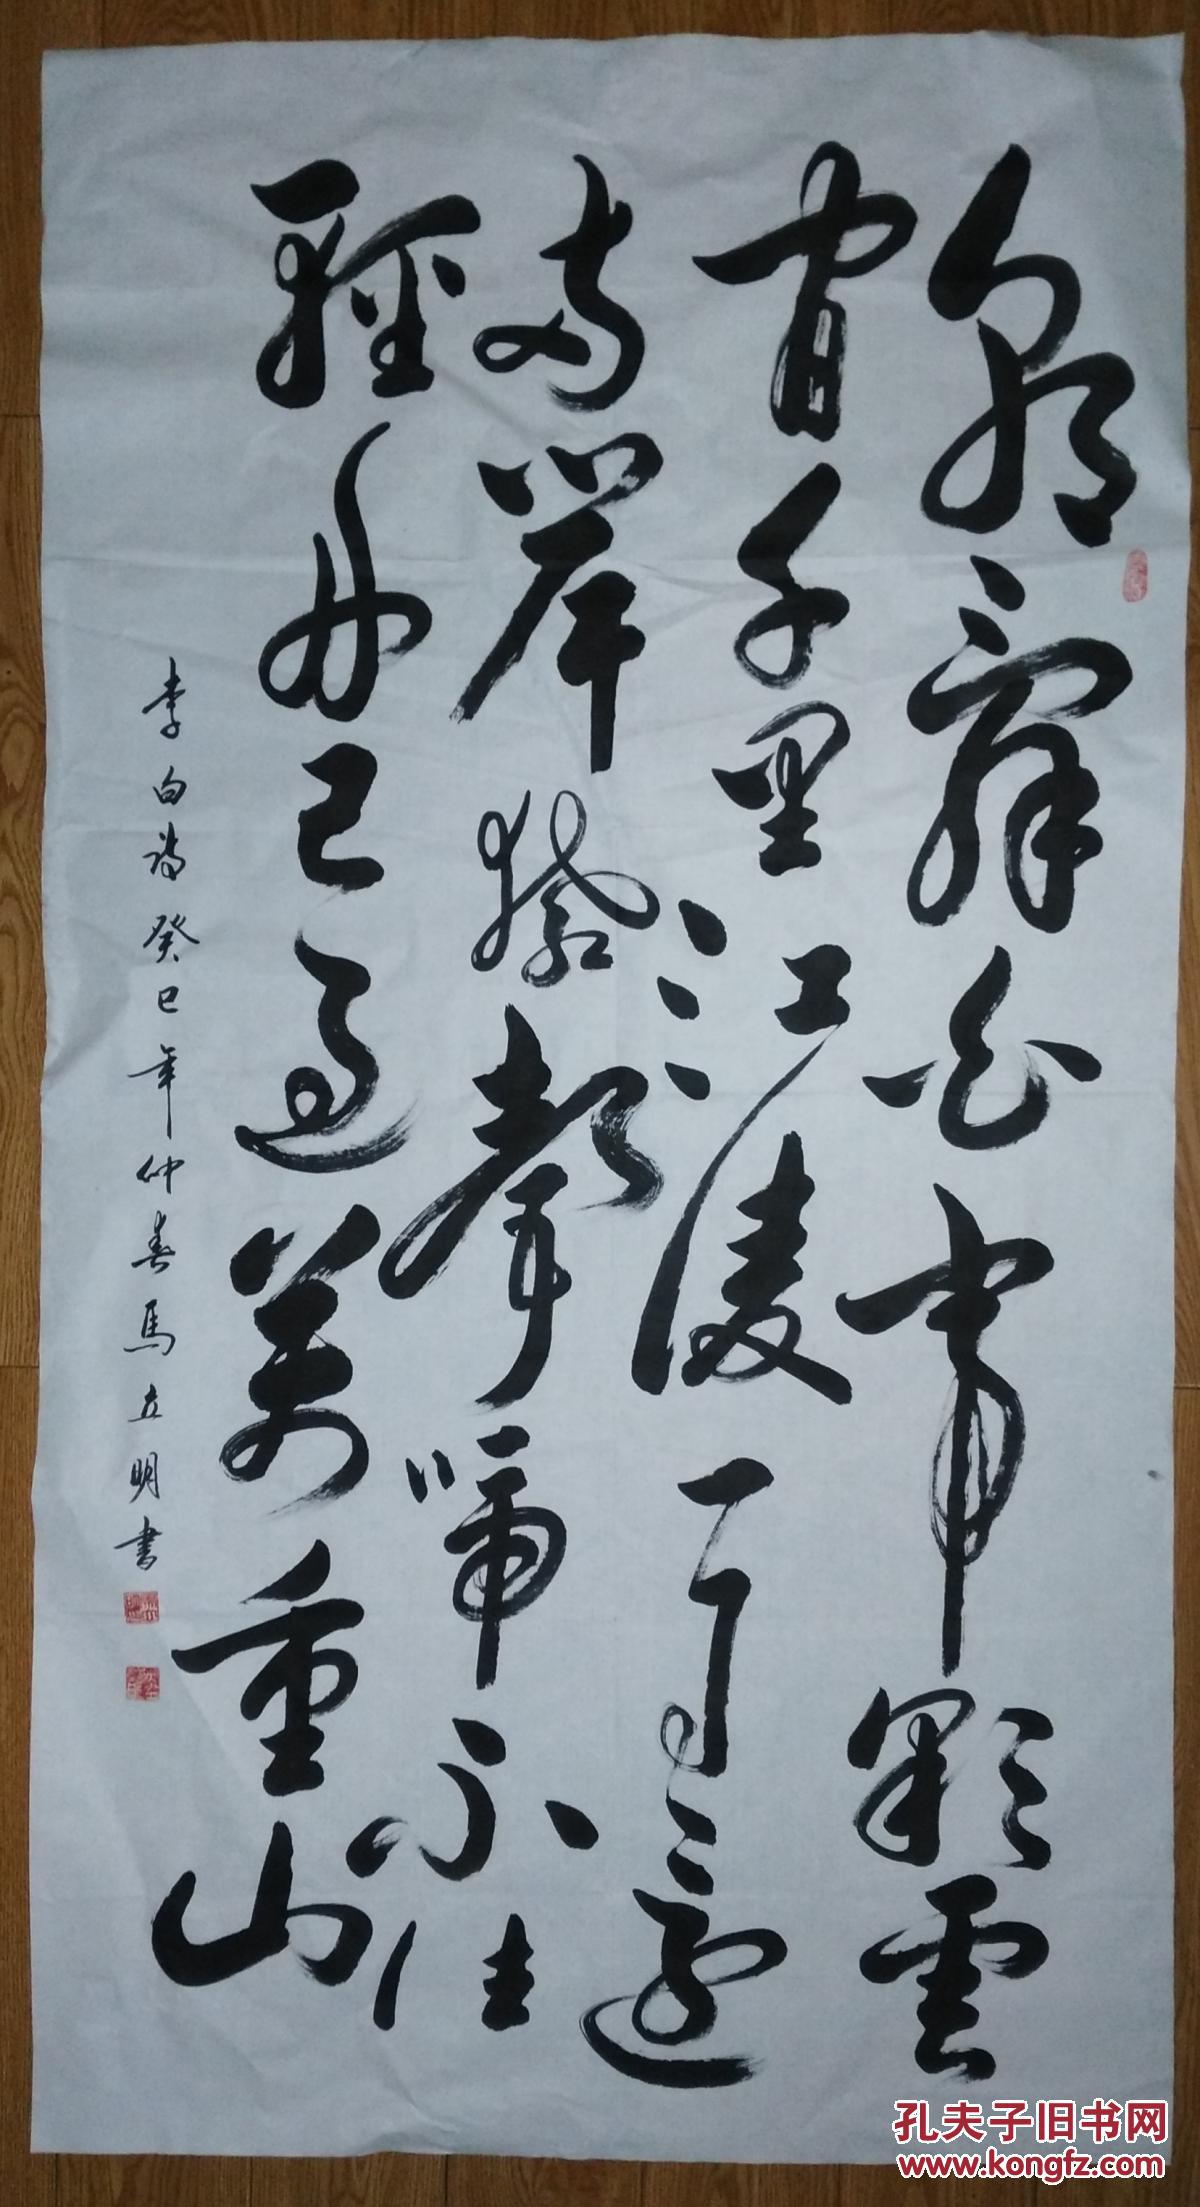 朝辞白帝彩雲
间千里江陵一日還
两岸猿聲啼不住
輕舟已过萬重山
李白诗癸巳年仲春馬立明书
孔夫子旧书网
www.kongfz.com